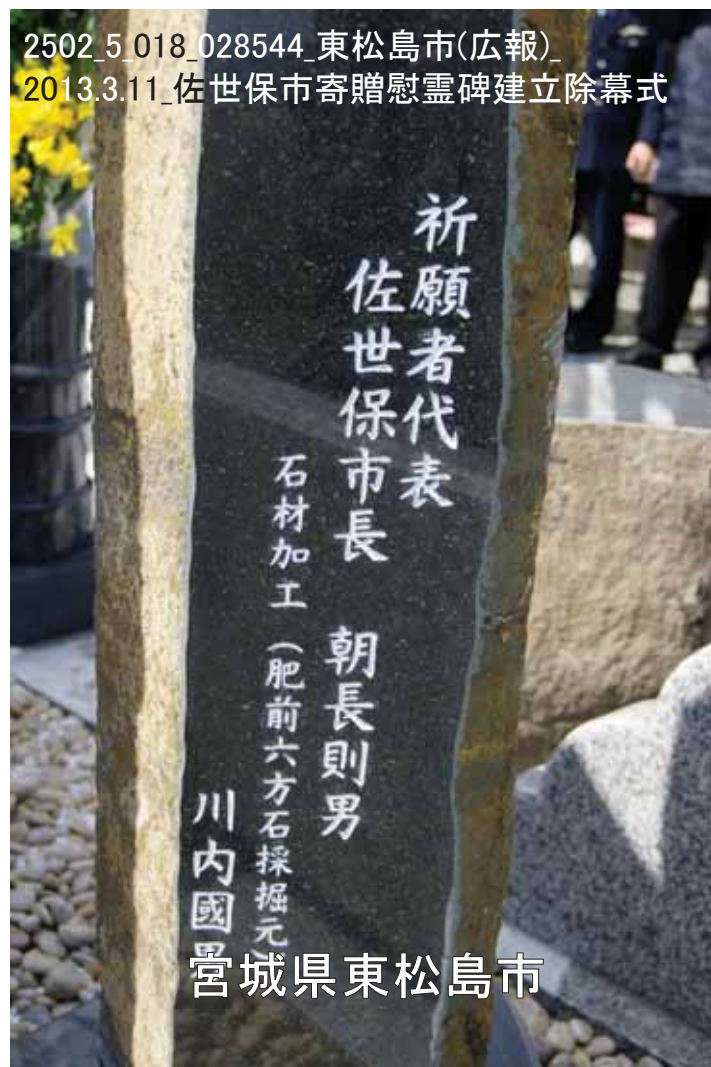 2502_5_018_028544_東松島市(広報)_
2013.3.11_佐世保市寄贈慰霊碑建立除幕式
祈願者代表
佐世保市長　朝長則男
石材加工（肥前六方石採掘元
川内國男
宮城県東松島市